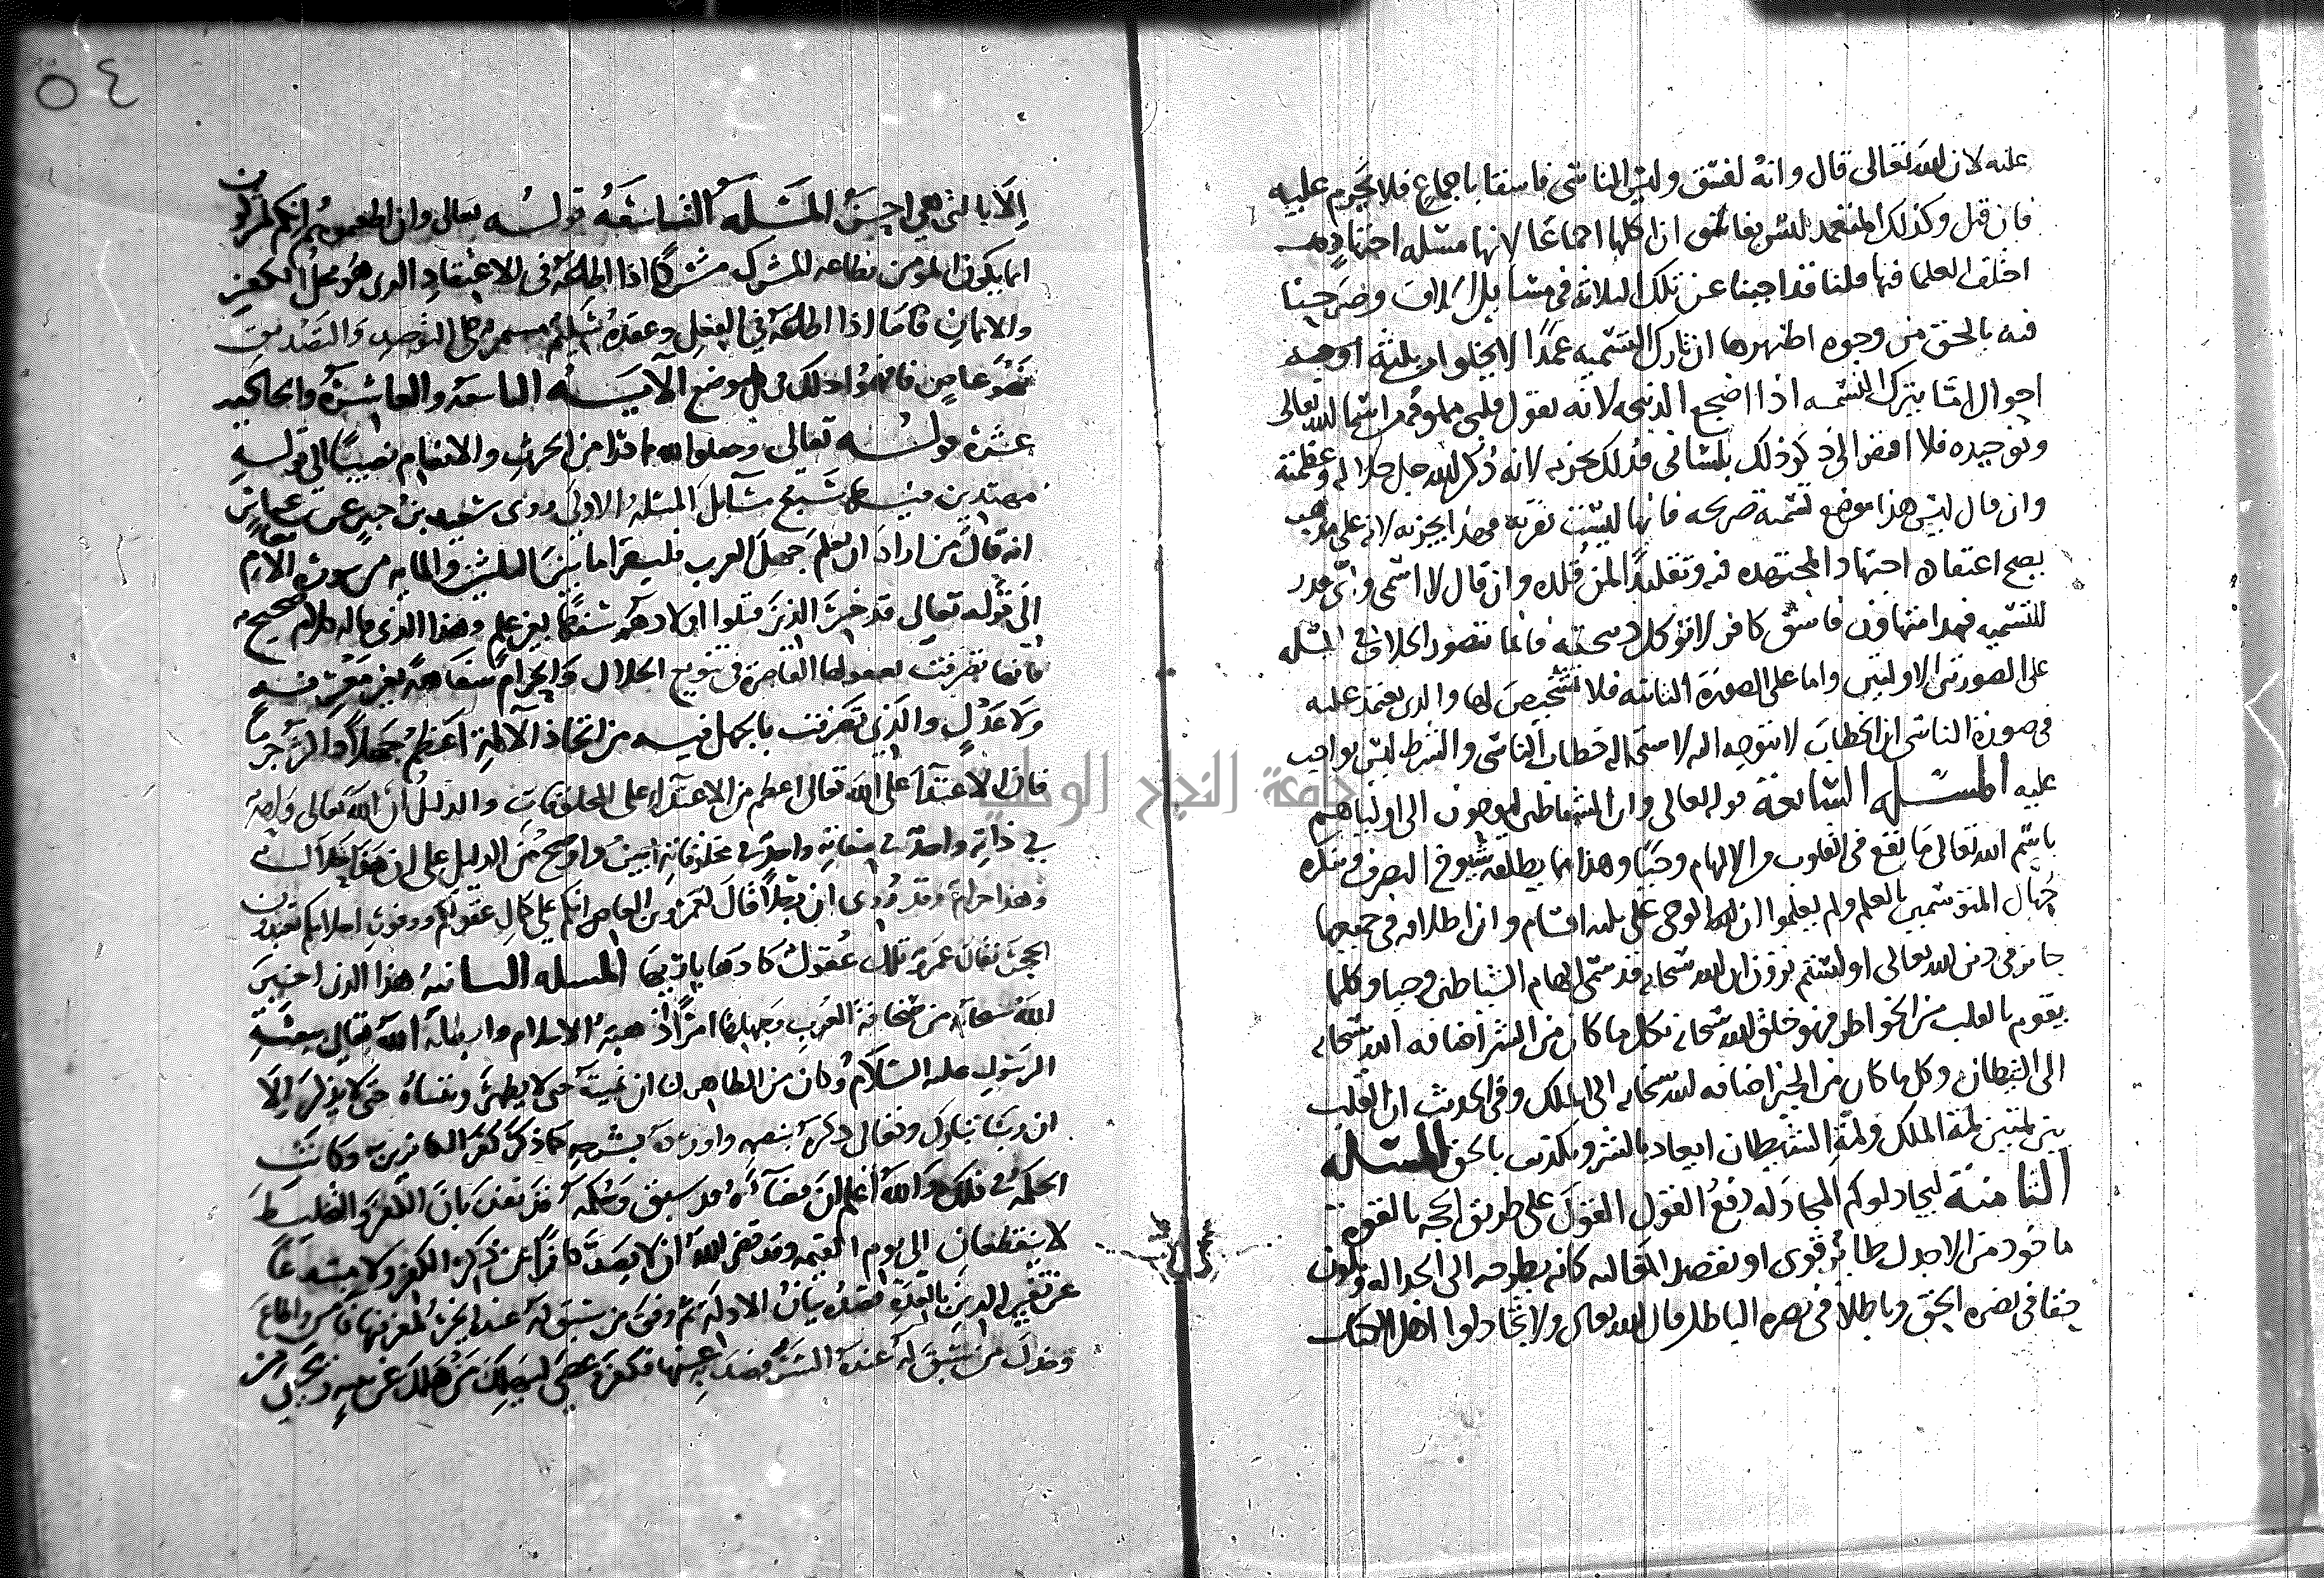 عليه لان الله تعالى قال وانه لفسق وليس الناسي فاسقا باجماع فلا تحرم عليه
فان قيل وكذلك المتعمد ليس بفاسق اذا اكلها اجماعا لانها مسئله اجتهاديه
اختلف العلما فيها قلنا قد اجبنا عن تلك الثلاثة في مسايل الخلاف وصرحنا
فيه بالحق من وجوه اظهرها ان تارك التسميه عمدا لا يخلو ان ثلثة اوجه
احوال اما يترك التسميه اذا اضجع الذبيحه لانه يقول قلبي مملو من اسما الله تعالى
وتوحيده فلا افتقر الى ذكر ذلك بلساني فذلك يجزيه لانه ذكر الله جل جلاله وعظمته
وان قال ليس هذا موضع تسمية صريحه فانها ليست بقربة فهذا يجزيه لانه على مذهب
يصح اعتقاده اجتهادا لمجتهده فيه وتقليدا لمن قلده وان قال لا اسمي واي قدر
للتسميه فهذا متهاون فاسق كافر لا تؤكل ذبيحته فانما يتصور الخلاف في المسئله
على الصورتين الاوليتين واما على الصورة الثالثة فلا تشخيص لها والذي يعتمد عليه
في صورة الناسي ان الخطاب لا يتوجه اليه لاستحالة خطاب الناسي والشرط ليس بواجب
عليه المسئله السابعة قوله تعالى وان الشياطين ليوحون الى اوليائهم
باسم الله تعالى ما يقع في القلوب من الالهام وحيا وهذا مما يطلقه شيوخ التصوف وينكره
جهال المتوسمين بالعلم ولم يعلموا ان الوحي على ثلثه اقسام وان اطلاقه في جميعها
جائز في دين الله تعالى اولستم ترون ان الله سبحانه قد سمى الهام الشياطين وحيا وكلما
يقوم بالقلب من الخواطر فهو خلق الله سبحانه فكل ما كان من الشر اضافه الله سبحانه
الى الشيطان وكل ما كان من الخير اضافه الله سبحانه الى الملك وفي الحديث ان القلب
بين لمتين لمة الملك ولمة الشيطان ايعاد بالشر وتكذيب بالحق المسئله
الثامنة ليجادلوكم المجادله دفع القول القول على طريق الحجه بالقوه
ماخوذ من الاجدل طائر قوي او بقصد المقاتله كانه يطرحه الى الجداله وتكون
حقا في نصره الحق وباطلا في نصره الباطل قال الله تعالى ولا تجادلوا اهل الكتاب
٥٤
الا بالتي هي احسن المسئله التاسعه قوله تعالى وان اطعتموهم انكم لمشركون
انما يكون المؤمن بطاعه المشرك مشركا اذا اطاعه في الاعتقاد الذي هو محل الكفر
والايمان فاما اذا اطاعه في الفعل وعقده سليم مستمر على التوحيد والتصديق
فهو عاص فافهموا ذلك في كل موضع الآيه التاسعه والعاشرة والحاديه
عشرة قوله تعالى وجعلوا لله مما ذرا من الحرث والانعام نصيبا الى قوله
مهتدين فيها سبع مسايل المسئله الاولى روى سعيد بن جبير عن ابن عباس
انه قال من اراد ان يعلم جهل العرب فليقرا ما بين الثلاثين والمايه من سورة الانعام
الى قوله تعالى قد خسر الذين قتلوا اولادهم سفها بغير علم وهذا الذي قاله كلام صحيح
فانها تصرفت بعقولها القاصرة في تنويع الحلال والحرام سفاهة بغير معرفه
ولا عدل والذي تصرفت بالجهل فيه من اتخاذ الآلهة اعظم جهلا واكبر جرما
فان الاعتداء على الله تعالى اعظم من الاعتداء على المخلوقات والدليل ان الله تعالى واحد
في ذاته واحد في صفاته واحد في مخلوقاته ابين واوضح من الدليل على ان هذا حلال
وهذا حرام وقد روي ان رجلا قال لعمرو بن العاص انكم على كمال عقولكم ووفور احلامكم تعبدون
الحجر فقال عمرو تلك عقول كادها باريها المسئله الثانيه هذا الذي اخبر
الله سبحانه من سخافة العرب وجهلها امر اذهبه الاسلام وابطله الله تعالى ببعثة
الرسول عليه السلام وكان من الظاهر لنا ان نميته حتى لا يظهر وننساه حتى لا يذكر الا
ان ربنا تبارك وتعالى ذكره بنصه واورده بشرحه كما ذكر كفر الكافرين به وكانت
الحكمه في ذلك والله اعلم ان قضاءه قد سبق وحكمه قد نفذ بان الكفر والتخليط
لا ينقطعان الى يوم القيمه وقد قضى الله ان لا يصد كافرا عن ذكره الكفر ولا مبتدعا
عن تغيير الدين بالقدرة قصد بيان الادله ثم وفق من سبق له عنده الخير لمعرفتها فامن واطاع
وخذل من سبق له عنده الشر فصد عنها فكفر وعصى ليهلك من هلك عن بينه ويحيى من
جامعة النجاح الوطنية